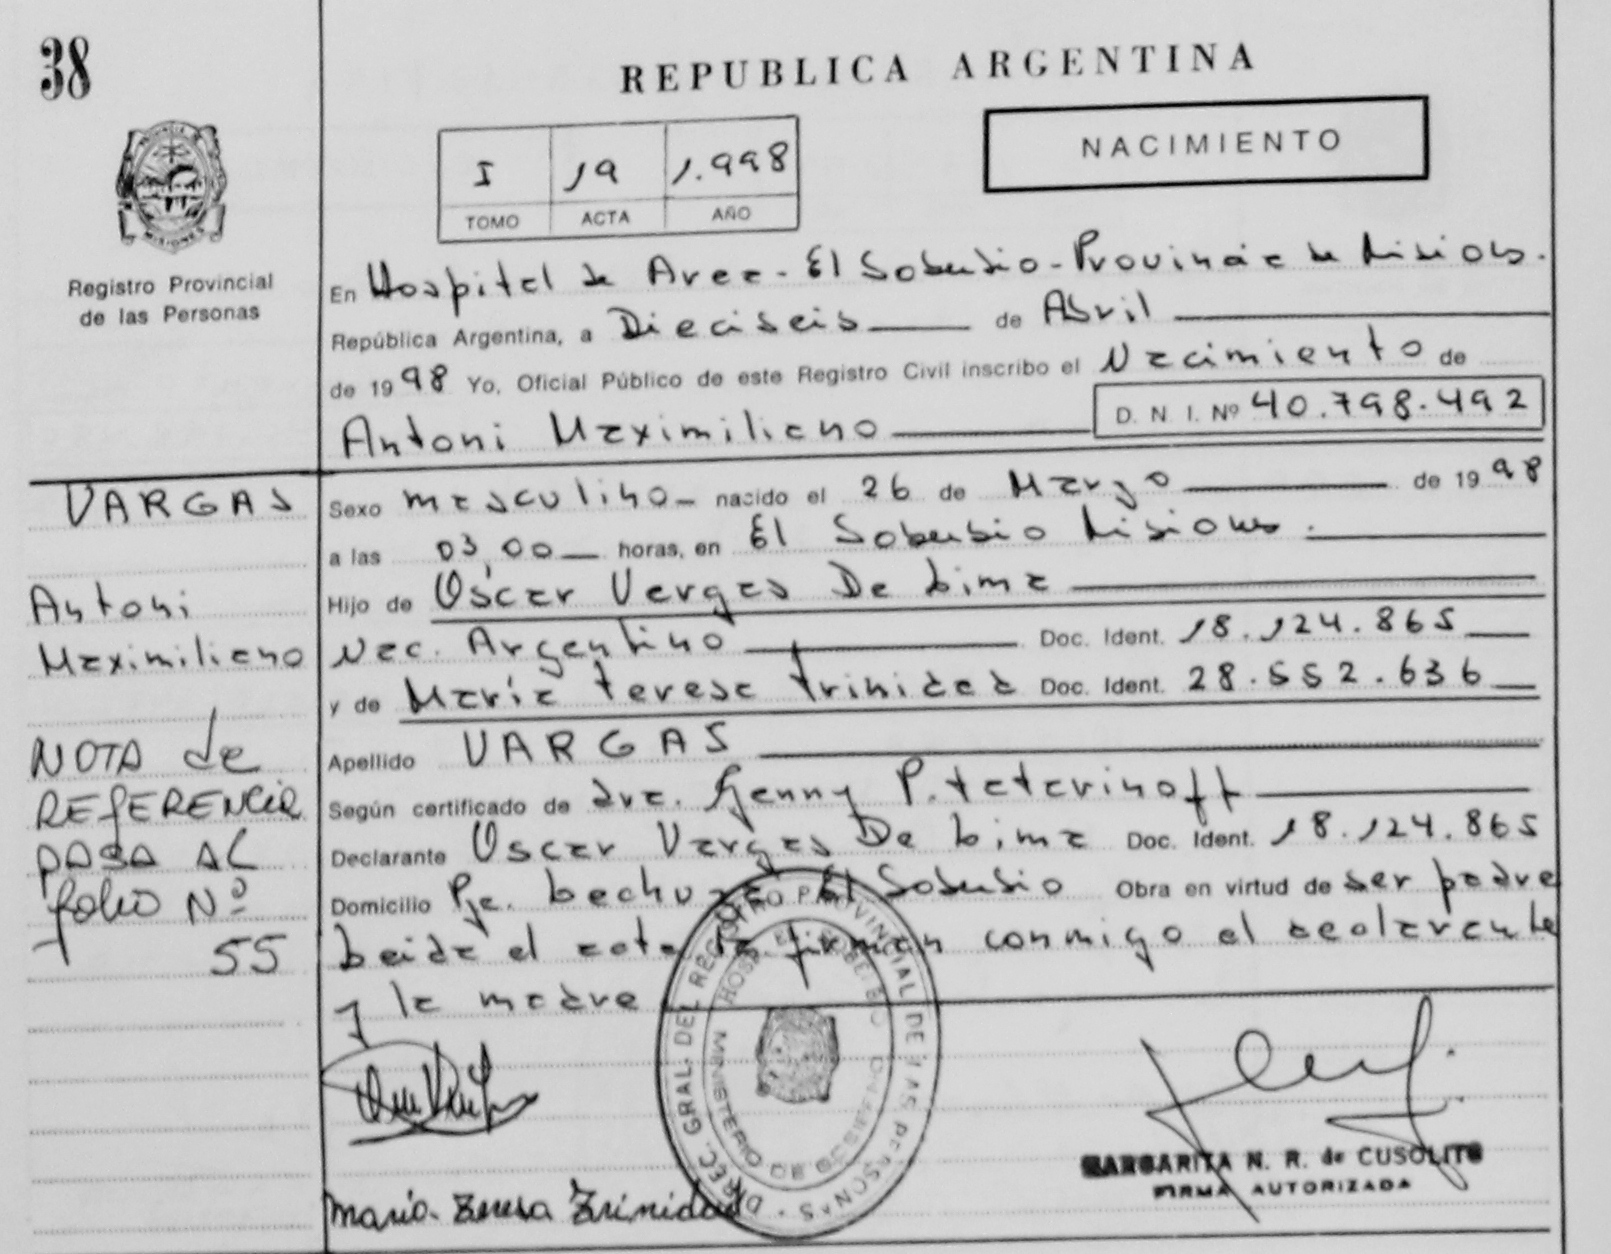 38
REPUBLICA ARGENTINA
NACIMIENTO
I 19 1.998
TOMO ACTA AÑO
PROVINCIA DE MISIONES
Registro Provincial
de las Personas
En Hospital de Area - El Soberbio - Provincia de Misiones.
República Argentina, a Dieciseis de Abril
de 1998 Yo, Oficial Público de este Registro Civil inscribo el Nacimiento de
Antoni Maximiliano D. N. I. Nº 40.798.492
VARGAS
Antoni
Maximiliano
NOTA de
REFERENCIA
PASA AL
folio Nº
55
Sexo masculino nacido el 26 de Marzo de 1998
a las 03,00 horas, en El Soberbio Misiones.
Hijo de Oscar Vargas De Lima
Nac. Argentino Doc. Ident. 18.124.865
y de María Teresa Trinidad Doc. Ident. 28.552.636
Apellido VARGAS
Según certificado de dra. Jenny P. Teterinoff
Declarante Oscar Vargas De Lima Doc. Ident. 18.124.865
Domicilio Pje. El Soberbio Obra en virtud de ser padre
Leida el acta la firman conmigo el declarante
y la madre
DIREC. GRAL. DEL REGISTRO PROVINCIAL DE LAS PERSONAS
HOSP. EL SOBERBIO
MINISTERIO DE GOBIERNO
Maria Teresa Trinidad
MARGARITA N. R. de CUSOLITO
FIRMA AUTORIZADA